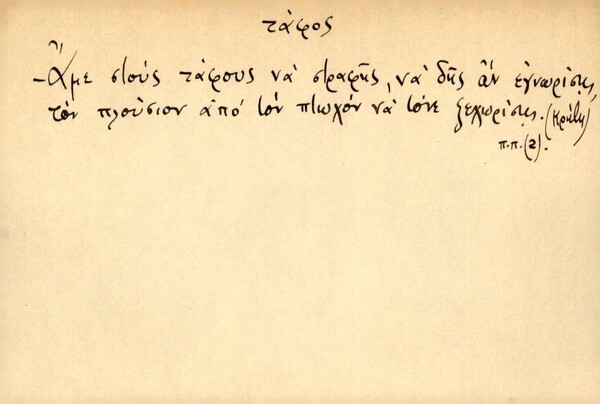 τάφος
– Ἄμε στούς τάφους νά στραφῇς, νά δῇς ἄν ἐγνωρίσῃς,
τόν πλούσιον ἀπό τόν πτωχόν νά τόνε ξεχωρίσῃς. (Κρήτη)
π.π. (2).